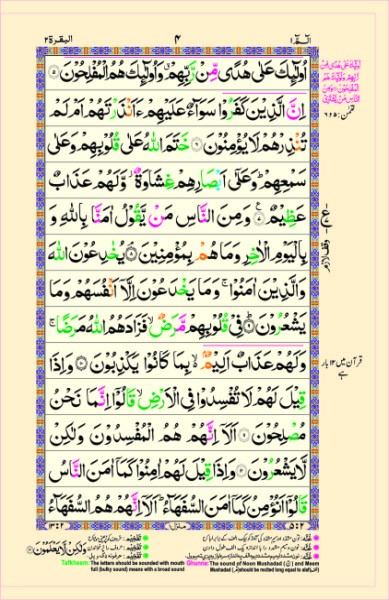 الٓمّٓ ١ ٤ البقرة ٢
اُولٰٓئِكَ عَلٰى هُدًى مِّنْ رَّبِّهِمْ ۗ وَاُولٰٓئِكَ هُمُ الْمُفْلِحُوْنَ ۝٥
اِنَّ الَّذِيْنَ كَفَرُوْا سَوَآءٌ عَلَيْهِمْ ءَاَنْذَرْتَهُمْ اَمْ لَمْ
تُنْذِرْهُمْ لَا يُؤْمِنُوْنَ ۝٦ خَتَمَ اللّٰهُ عَلٰى قُلُوْبِهِمْ وَعَلٰى
سَمْعِهِمْ ؕ وَعَلٰٓى اَبْصَارِهِمْ غِشَاوَةٌ ؗ وَّلَهُمْ عَذَابٌ
عَظِيْمٌ ۝٧ وَمِنَ النَّاسِ مَنْ يَّقُوْلُ اٰمَنَّا بِاللّٰهِ وَ
بِالْيَوْمِ الْاٰخِرِ وَمَا هُمْ بِمُؤْمِنِيْنَ ۝٨ يُخٰدِعُوْنَ اللّٰهَ
وَالَّذِيْنَ اٰمَنُوْا ۚ وَمَا يَخْدَعُوْنَ اِلَّآ اَنْفُسَهُمْ وَمَا
يَشْعُرُوْنَ ۝٩ فِيْ قُلُوْبِهِمْ مَّرَضٌ ۙ فَزَادَهُمُ اللّٰهُ مَرَضًا ۚ
وَلَهُمْ عَذَابٌ اَلِيْمٌۢ ۙ بِمَا كَانُوْا يَكْذِبُوْنَ ۝١٠ وَاِذَا
قِيْلَ لَهُمْ لَا تُفْسِدُوْا فِي الْاَرْضِ ۙ قَالُوْٓا اِنَّمَا نَحْنُ
مُصْلِحُوْنَ ۝١١ اَلَآ اِنَّهُمْ هُمُ الْمُفْسِدُوْنَ وَلٰكِنْ
لَّا يَشْعُرُوْنَ ۝١٢ وَاِذَا قِيْلَ لَهُمْ اٰمِنُوْا كَمَآ اٰمَنَ النَّاسُ
قَالُوْٓا اَنُؤْمِنُ كَمَآ اٰمَنَ السُّفَهَآءُ ؕ اَلَآ اِنَّهُمْ هُمُ السُّفَهَآءُ
منزل ١
وَلٰكِنْ لَّا يَعْلَمُوْنَ
قرآن میں ۱۲ بار
ہے
Tafkheem: The letters should be sounded with mouth full (bulky sound) means with a broad sound
Ghunna: The sound of Noon Mushadad (نّ) and Meem Mushadad (مّ) should be